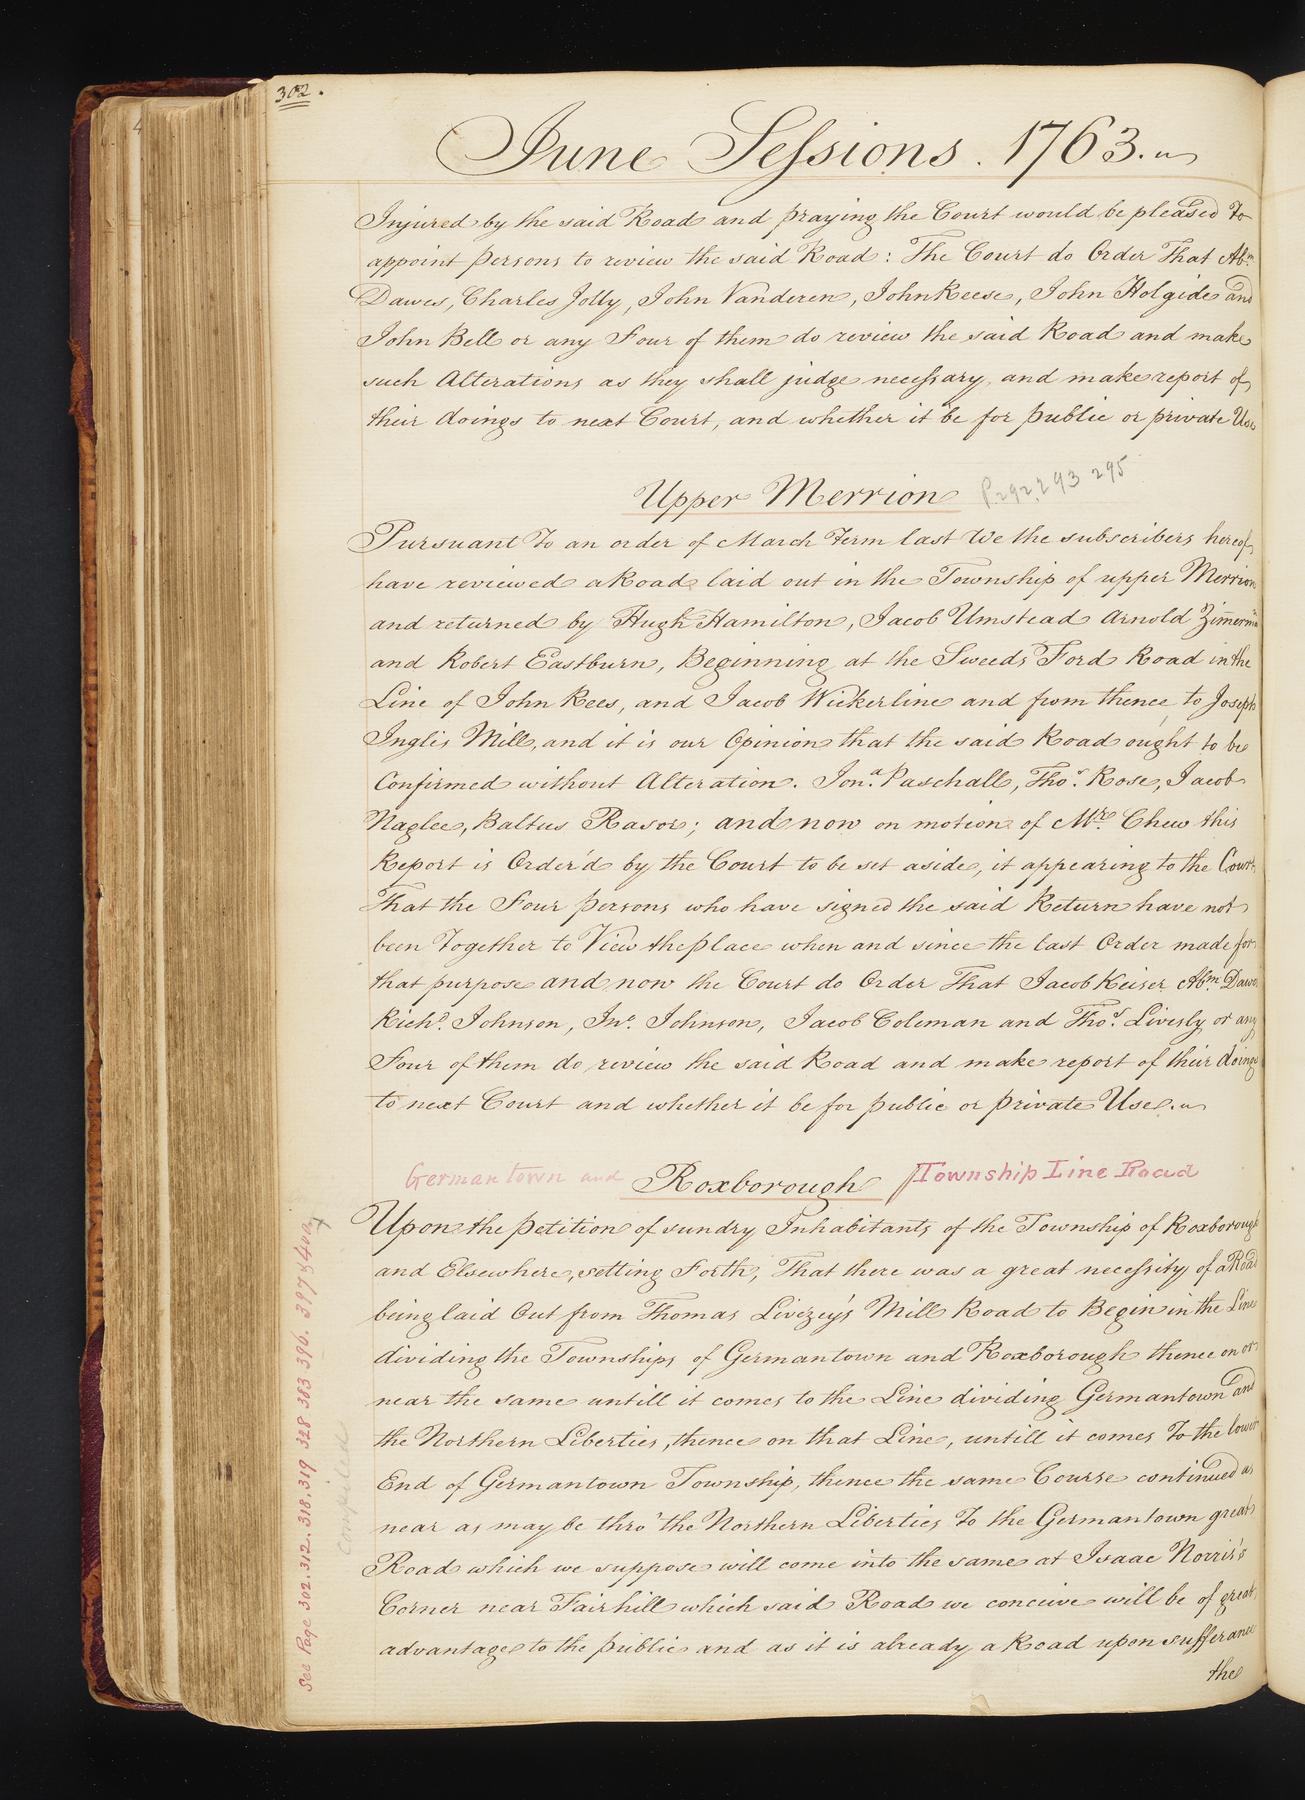 302.
June Sessions. 1763.
Injured by the said Road and praying the Court would be pleased To
appoint persons to review the said Road: The Court do Order That Abm.
Dawes, Charles Jolly, John Vanderen, John Reese, John Holgide and
John Bell or any Four of them do review the said Road and make
such Alterations as they shall judge necessary, and make report of
their doings to next Court, and whether it be for public or private Use
Upper Merrion P. 292, 293 295
Pursuant To an order of March Term last We the subscribers hereof
have reviewed a Road laid out in the Township of upper Merrion
and returned by Hugh Hamilton, Jacob Umstead Arnold Zimerman
and Robert Eastburn, Beginning at the Sweeds Ford Road in the
Line of John Rees, and Jacob Wickerline and from thence to Joseph
Inglis Mill, and it is our Opinion that the said Road ought to be
Confirmed without Alteration. Jona. Paschall, Thos. Rose, Jacob
Naglee, Baltus Rasor; and now on motion of Mr. Chew this
Report is Order'd by the Court to be set aside, it appearing to the Court
That the Four persons who have signed the said Return have not
been Together to View the place when and since the last Order made for
that purpose and now the Court do Order That Jacob Keiser Abm. Dawes
Richd. Johnson, Jno. Johnson, Jacob Coleman and Thos. Livesly or any
Four of them do review the said Road and make report of their doings
to next Court and whether it be for public or private Use.
Germantown and Roxborough Township Line Road
Upon the petition of sundry Inhabitants of the Township of Roxborough
and Elsewhere, setting Forth, That there was a great necessity of a Road
being laid Out from Thomas Livezey's Mill Road to Begin in the Line
dividing the Townships of Germantown and Roxborough thence on or
near the same untill it comes to the Line dividing Germantown and
the Northern Liberties, thence on that Line, untill it comes To the lower
End of Germantown Township, thence the same Course continued as
near as may be thro' the Northern Liberties To the Germantown great
Road which we suppose will come into the same at Isaac Norris's
Corner near Fairhill which said Road we conceive will be of great
advantage to the public and as it is already a Road upon sufferance
the
See Page 302. 312. 318. 319 328 383 396. 397 &
compiled